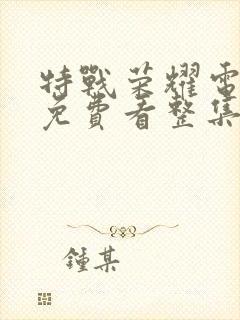 特戰荣耀電
免費看整集
鍾某